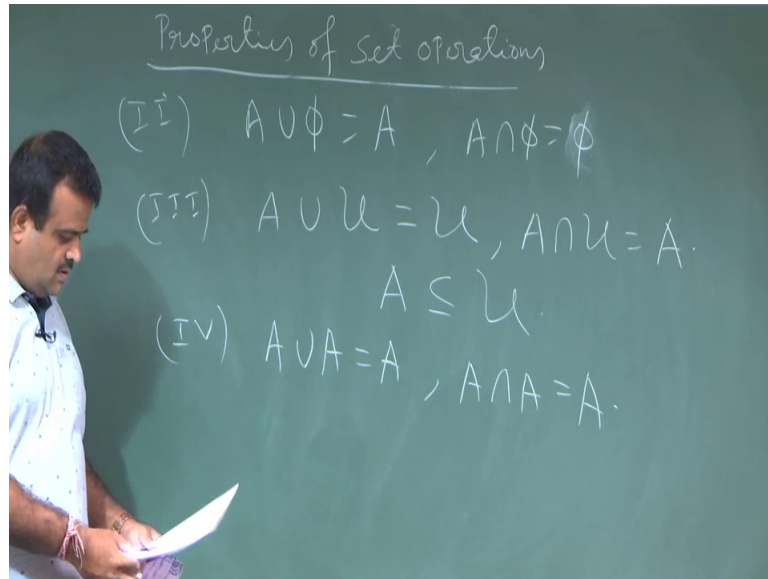 Properties of set operations
(II) A ∪ ϕ = A , A ∩ ϕ = ϕ
(III) A ∪ U = U , A ∩ U = A.
A ⊆ U.
(IV) A ∪ A = A , A ∩ A = A.